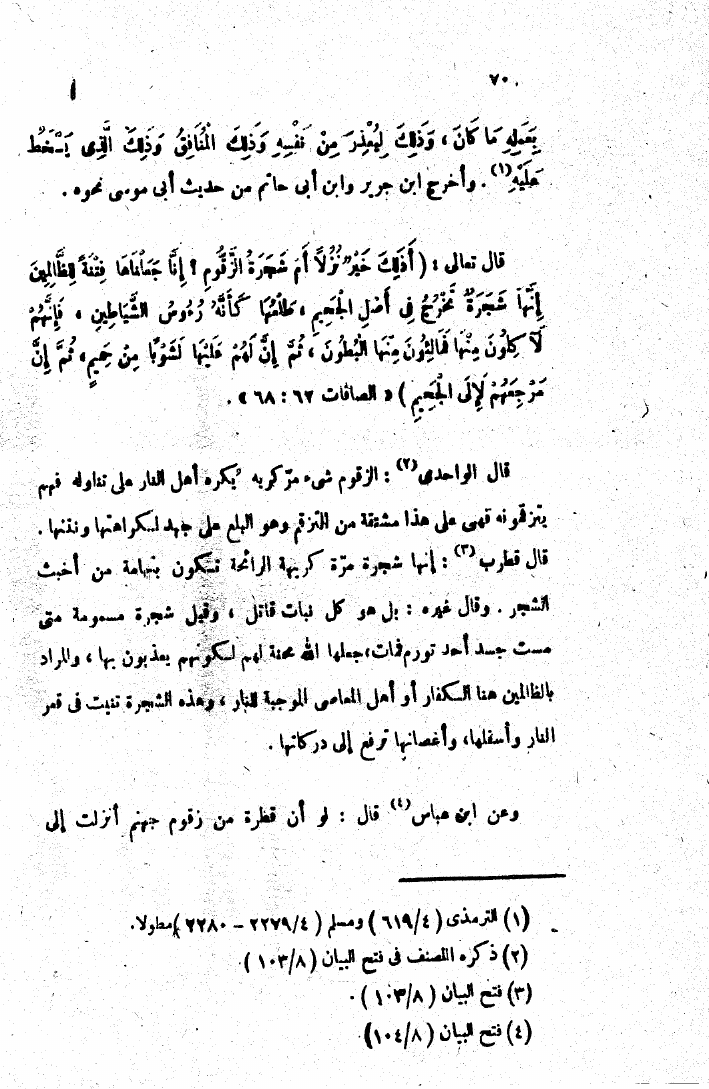 ٧٠
بِعَمَلِهِ مَا كَانَ ، وَذَلِكَ لِيُعْذِرَ مِنْ نَفْسِهِ وَذَلِكَ الْمُنَافِقُ وَذَلِكَ الَّذِى يَسْخَطُ
عَلَيْهِ(١) . وأخرج ابن جرير وابن أبى حاتم من حديث أبى موسى نحوه .
قال تعالى : ( أَذَلِكَ خَيْرٌ نُزُلاً أَمْ شَجَرَةُ الزَّقُّومِ ؟ إِنَّا جَعَلْنَاهَا فِتْنَةً لِلظَّالِمِينَ
إِنَّهَا شَجَرَةٌ تَخْرُجُ فِى أَصْلِ الْجَحِيمِ ، طَلْعُهَا كَأَنَّهُ رُءُوسُ الشَّيَاطِينِ ، فَإِنَّهُمْ
لَآكِلُونَ مِنْهَا فَمَالِئُونَ مِنْهَا الْبُطُونَ ، ثُمَّ إِنَّ لَهُمْ عَلَيْهَا لَشَوْبًا مِنْ حَمِيمٍ ، ثُمَّ إِنَّ
مَرْجِعَهُمْ لَإِلَى الْجَحِيمِ ) « الصافات ٦٢ : ٦٨ » .
قال الواحدى(٢) : الزقوم شىء مرّ كريه يُكره أهل النار على تناوله فهم
يتزقمونه فهى على هذا مشتقة من التزقم وهو البلع على جهد لكراهتها ونتنها .
قال قطرب(٣) : إنها شجرة مرّة كريهة الرائحة تكون بتهامة من أخبث
الشجر . وقال غيره : بل هو كل نبات قاتل ، وقيل شجرة مسمومة متى
مست جسد أحد تورم فمات، جعلها الله محنة لهم لكونهم يعذبون بها ، والمراد
بالظالمين هنا الكفار أو أهل المعاصى الموجبة للنار ، وهذه الشجرة تنبت فى قعر
النار وأسفلها، وأغصانها ترفع إلى دركاتها .
وعن ابن عباس(٤) قال : لو أن قطرة من زقوم جهنم أنزلت إلى
(١) الترمذى ( ٦١٩/٤ ) ومسلم ( ٢٢٧٩/٤ – ٢٢٨٠ )مطولا.
(٢) ذكره المصنف فى فتح البيان ( ١٠٣/٨ ).
(٣) فتح البيان ( ١٠٣/٨ ) .
(٤) فتح البيان ( ١٠٤/٨)